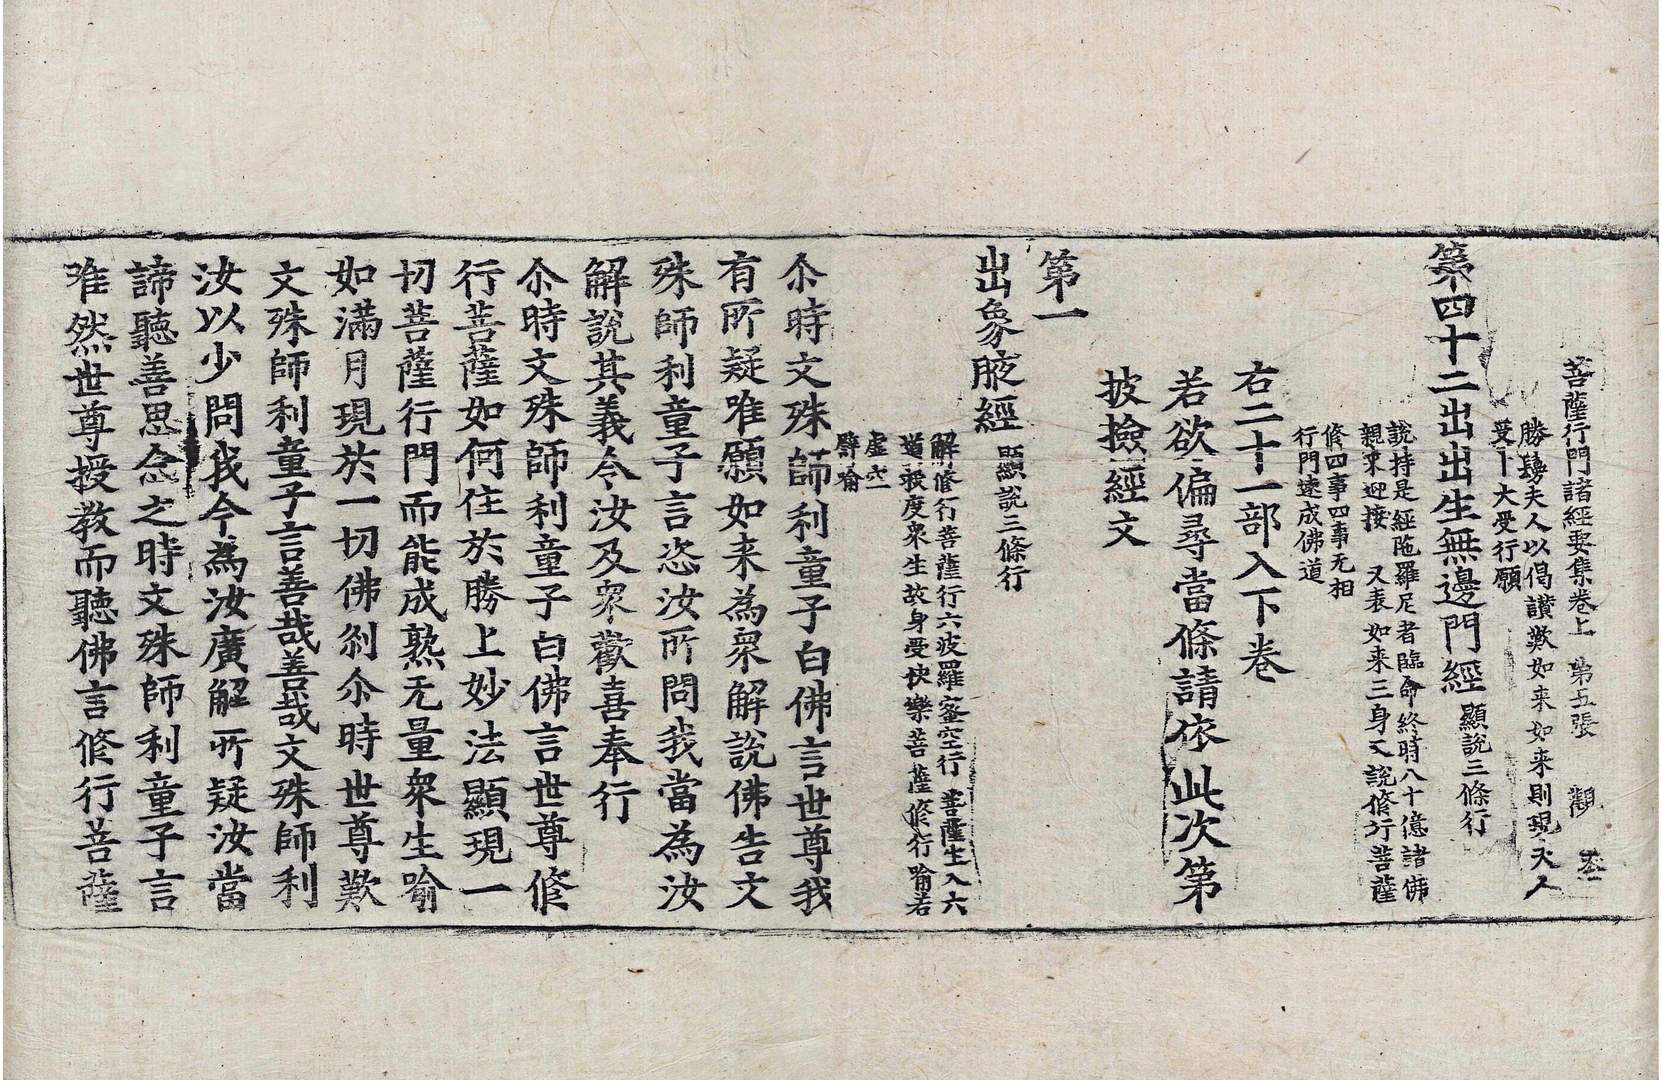 菩薩行門諸經要集卷上 第五張 觀
勝鬘夫人以偈讚歎如来如来則現天人
受十大受行願
第四十二出出生無邊門經 顯說三條行
說持是經陁羅尼者臨命終時八十億諸佛
親来迎接 又表如来三身又說修行菩薩
修四事四事无相
行門速成佛道
右二十一部入下卷
若欲偏尋當條請依此次第
披撿經文
第一
出象腋經 顯說三條行
解修行菩薩行六波羅蜜空行 菩薩生入六
道救度衆生故身受快樂菩薩修行喻若
虛空
譬喻
尒時文殊師利童子白佛言世尊我
有所疑唯願如来為衆解說佛告文
殊師利童子言恣汝所問我當為汝
解說其義令汝及衆歡喜奉行
尒時文殊師利童子白佛言世尊修
行菩薩如何住於勝上妙法顯現一
切菩薩行門而能成熟无量衆生喻
如滿月現於一切佛剎尒時世尊歎
文殊師利童子言善哉善哉文殊師利
汝以少問我今為汝廣解所疑汝當
諦聽善思念之時文殊師利童子言
唯然世尊授教而聽佛言修行菩薩